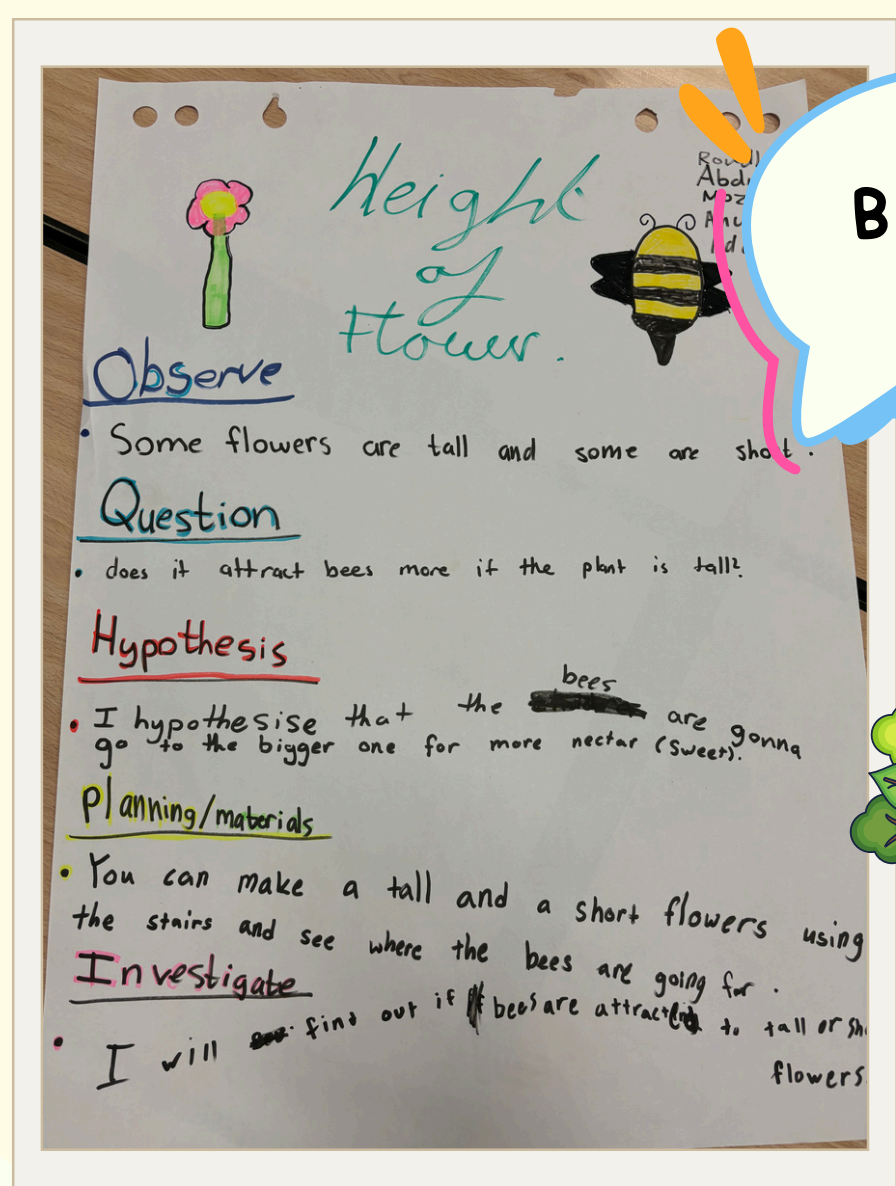 Height
of
Flower.
B
Observe
• Some flowers are tall and some are short.
Question
• does it attract bees more if the plant is tall?
Hypothesis
bees
• I hypothesise that the are gonna
go to the bigger one for more nectar (sweet).
Planning/materials
• You can make a tall and a short flowers using
the stairs and see where the bees are going for.
Investigate
• I will find out if bees are attracted to tall or
flowers